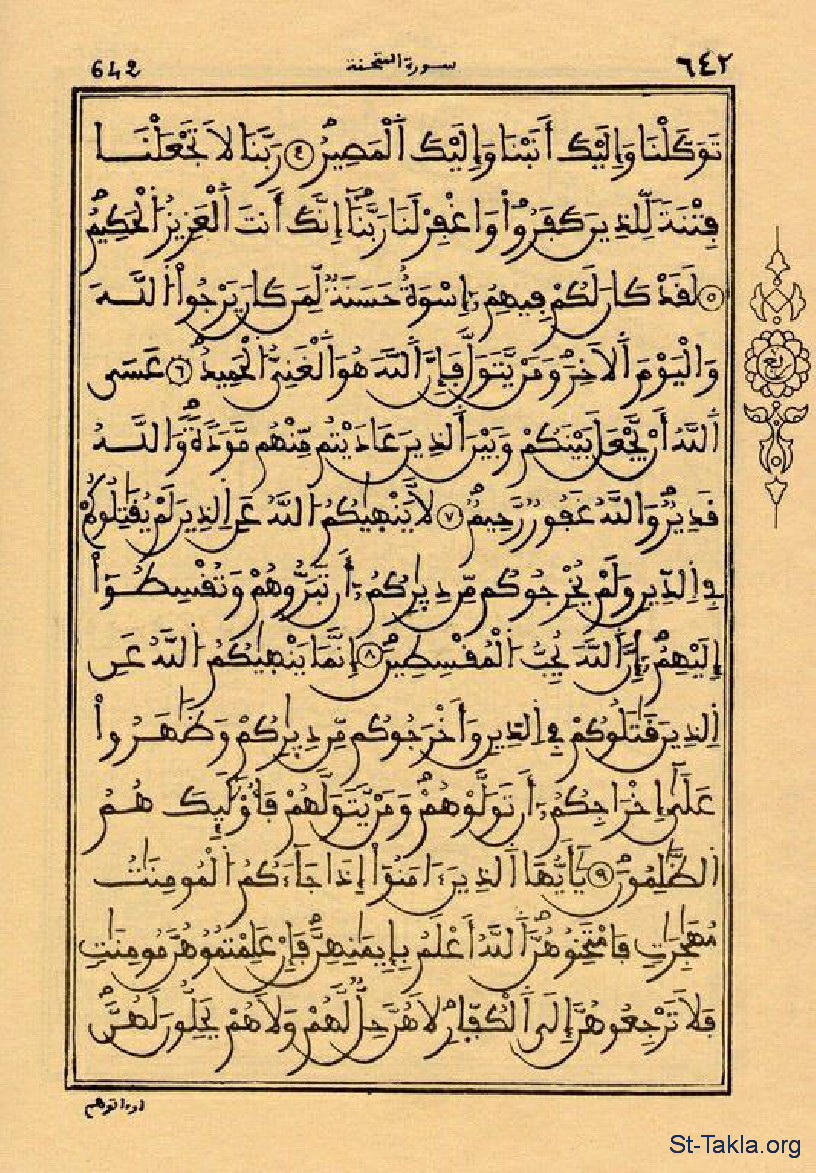 ٦٤٢ سورة الممتحنة 642
تَوَكَّلْنَا وَإِلَيْكَ أَنَبْنَا وَإِلَيْكَ اَ۬لْمَصِيرُ ٤ رَبَّنَا لاَ تَجْعَلْنَا
فِتْنَةً لِّلذِينَ كَفَرُواْ وَاغْفِرْ لَنَا رَبَّنَآ إِنَّكَ أَنتَ اَ۬لْعَزِيزُ اُ۬لْحَكِيمُ
٥ لَقَدْ كَانَ لَكُمْ فِيهِمُۥٓ إِسْوَةٌ حَسَنَةٌ لِّمَن كَانَ يَرْجُواْ اُ۬للَّهَ
وَالْيَوْمَ اَ۬لاَخِرَ وَمَنْ يَّتَوَلَّ فَإِنَّ اَ۬للَّهَ هُوَ اَ۬لْغَنِيُّ اُ۬لْحَمِيدُ ٦ عَسَى
اَ۬للَّهُ أَنْ يَّجْعَلَ بَيْنَكُمْ وَبَيْنَ اَ۬لذِينَ عَادَيْتُم مِّنْهُم مَّوَدَّةً وَاللَّهُ
قَدِيرٌ وَاللَّهُ غَفُورٌ رَّحِيمٌ ٧ لاَّ يَنْهَيٰكُمُ اُ۬للَّهُ عَنِ اِ۬لذِينَ لَمْ يُقَٰتِلُوكُمْ
فِے اِ۬لدِّينِ وَلَمْ يُخْرِجُوكُم مِّن دِيٰرِكُمُۥٓ أَن تَبَرُّوهُمْ وَتُقْسِطُوٓاْ
إِلَيْهِمُۥٓ إِنَّ اَ۬للَّهَ يُحِبُّ اُ۬لْمُقْسِطِينَ ٨ إِنَّمَا يَنْهَيٰكُمُ اُ۬للَّهُ عَنِ
اِ۬لذِينَ قَٰتَلُوكُمْ فِے اِ۬لدِّينِ وَأَخْرَجُوكُم مِّن دِيٰرِكُمْ وَظَٰهَرُواْ
عَلَىٰٓ إِخْرَاجِكُمُۥٓ أَن تَوَلَّوْهُمْ وَمَنْ يَّتَوَلَّهُمْ فَأُوْلَٰٓئِكَ هُمُ
اُ۬لظَّٰلِمُونَ ٩ يَٰٓأَيُّهَا اَ۬لذِينَ ءَامَنُوٓاْ إِذَا جَآءَكُمُ اُ۬لْمُومِنَٰتُ
مُهَٰجِرَٰتٍ فَامْتَحِنُوهُنَّ اَ۬للَّهُ أَعْلَمُ بِإِيمَٰنِهِنَّ فَإِنْ عَلِمْتُمُوهُنَّ مُومِنَٰتٍ
فَلاَ تَرْجِعُوهُنَّ إِلَى اَ۬لْكُفَّارِ لاَ هُنَّ حِلٌّ لَّهُمْ وَلاَ هُمْ يَحِلُّونَ لَهُنَّ
ربع
وءاتوهم
St-Takla.org